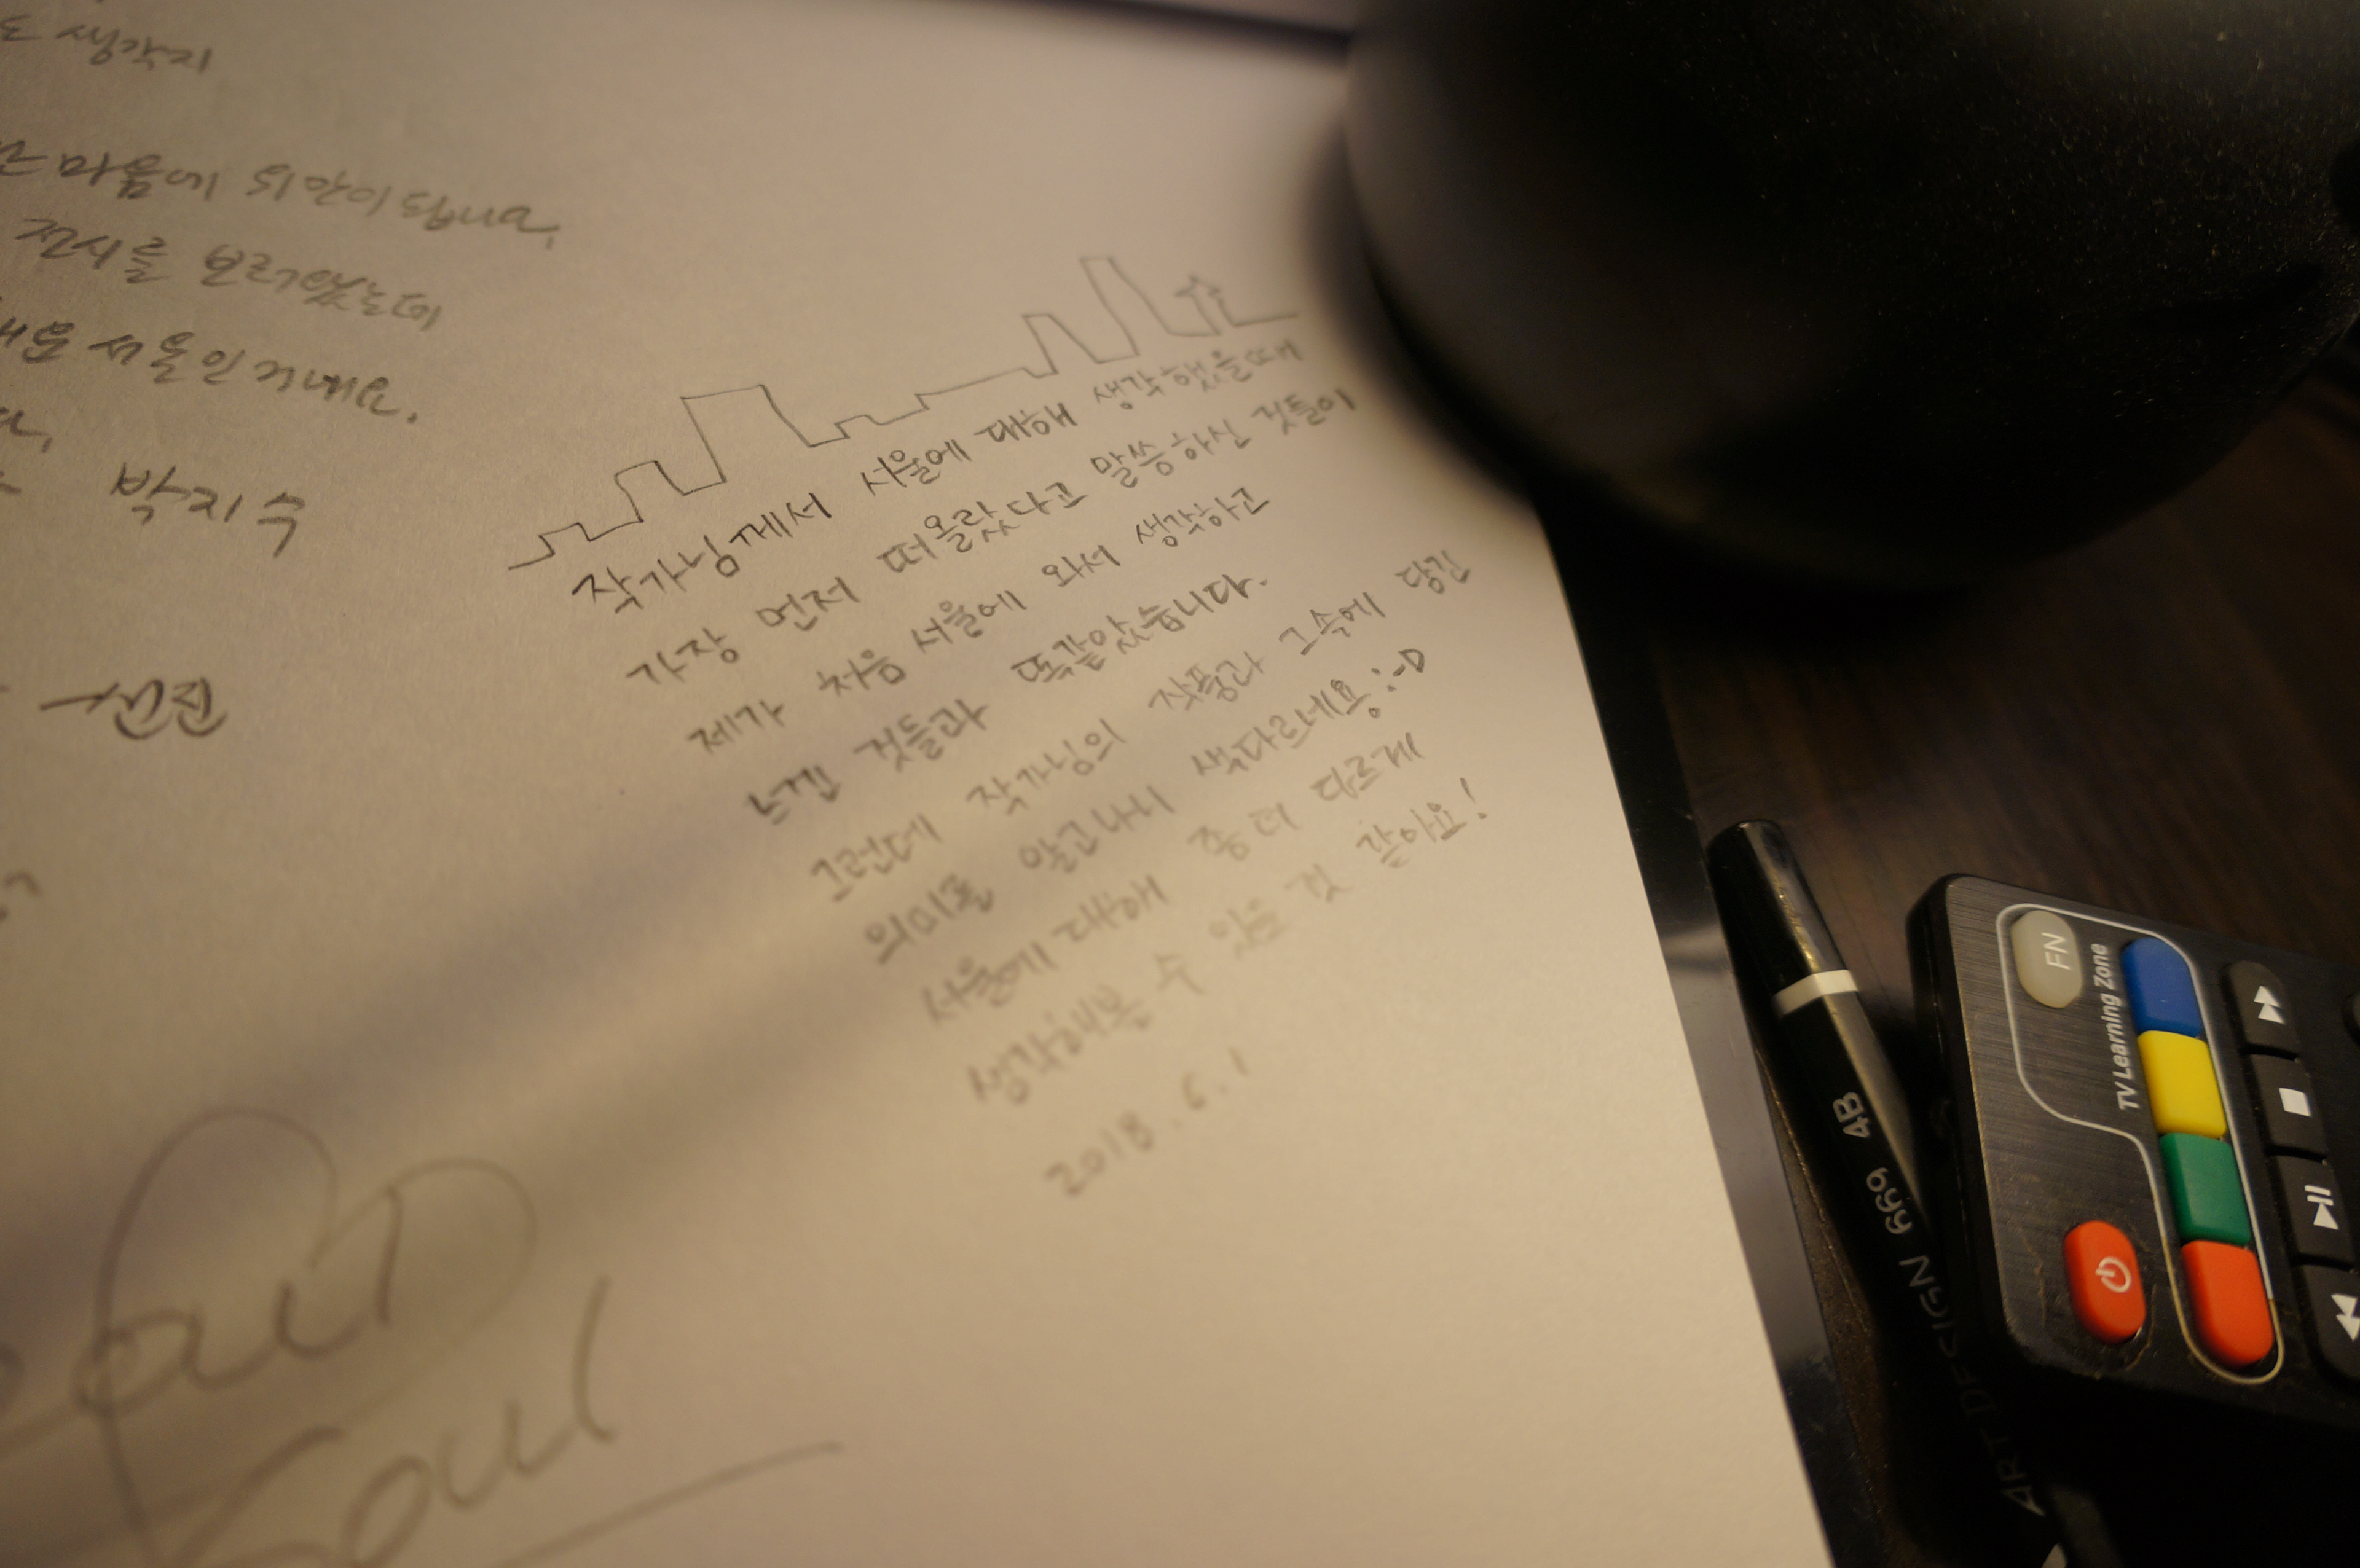 생각지
마음에 위안이 됩니다.
전시를 보러왔는데
서울인거네요.
박지수
작가님께서 서울에 대해 생각했을때
가장 먼저 떠올랐다고 말씀하신 것들이
제가 처음 서울에 와서 생각하고
느낀 것들과 똑같았습니다.
그런데 작가님의 작품과 그속에 담긴
의미를 알고나니 색다르네용 :-D
서울에 대해 좀 더 다르게
생각해볼 수 있을 것 같아요!
2018.6.1
Soul
FN
TV Learning Zone
4B
6669
ART DESIGN